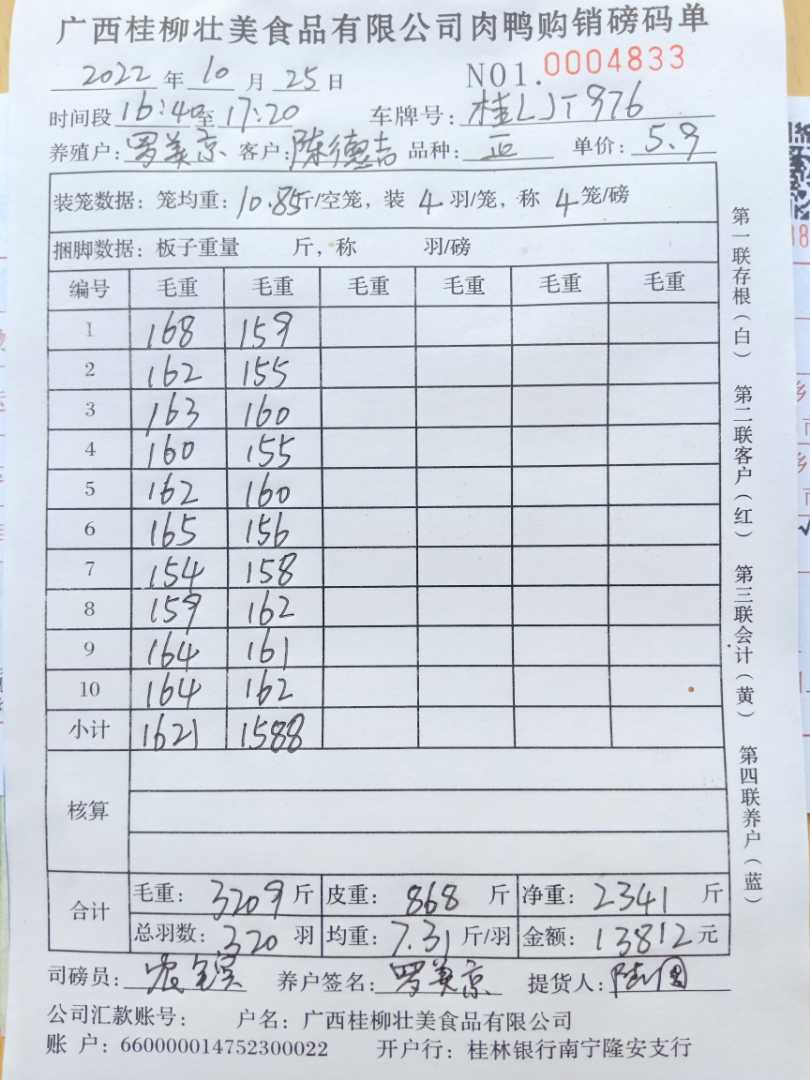 广西桂柳壮美食品有限公司肉鸭购销磅码单
2022 年 10 月 25 日 NO1.0004833
时间段 16:40 至 17:20 车牌号: 桂LJT976
养殖户: 罗美京 客户: 陈德吉 品种: 正 单价: 5.9
装笼数据: 笼均重: 10.85 斤/空笼, 装 4 羽/笼, 称 4 笼/磅
捆脚数据: 板子重量 斤, 称 羽/磅
编号 毛重 毛重 毛重 毛重 毛重 毛重
1 168 159
2 162 155
3 163 160
4 160 155
5 162 160
6 165 156
7 154 158
8 159 162
9 164 161
10 164 162
小计 1621 1588
核算
合计 毛重: 3209 斤 皮重: 868 斤 净重: 2341 斤
总羽数: 320 羽 均重: 7.31 斤/羽 金额: 13812 元
司磅员: 养户签名: 罗美京 提货人:
公司汇款账号: 户名: 广西桂柳壮美食品有限公司
账 户: 660000014752300022 开户行: 桂林银行南宁隆安支行
第一联存根(白) 第二联客户(红) 第三联会计(黄) 第四联养户(蓝)